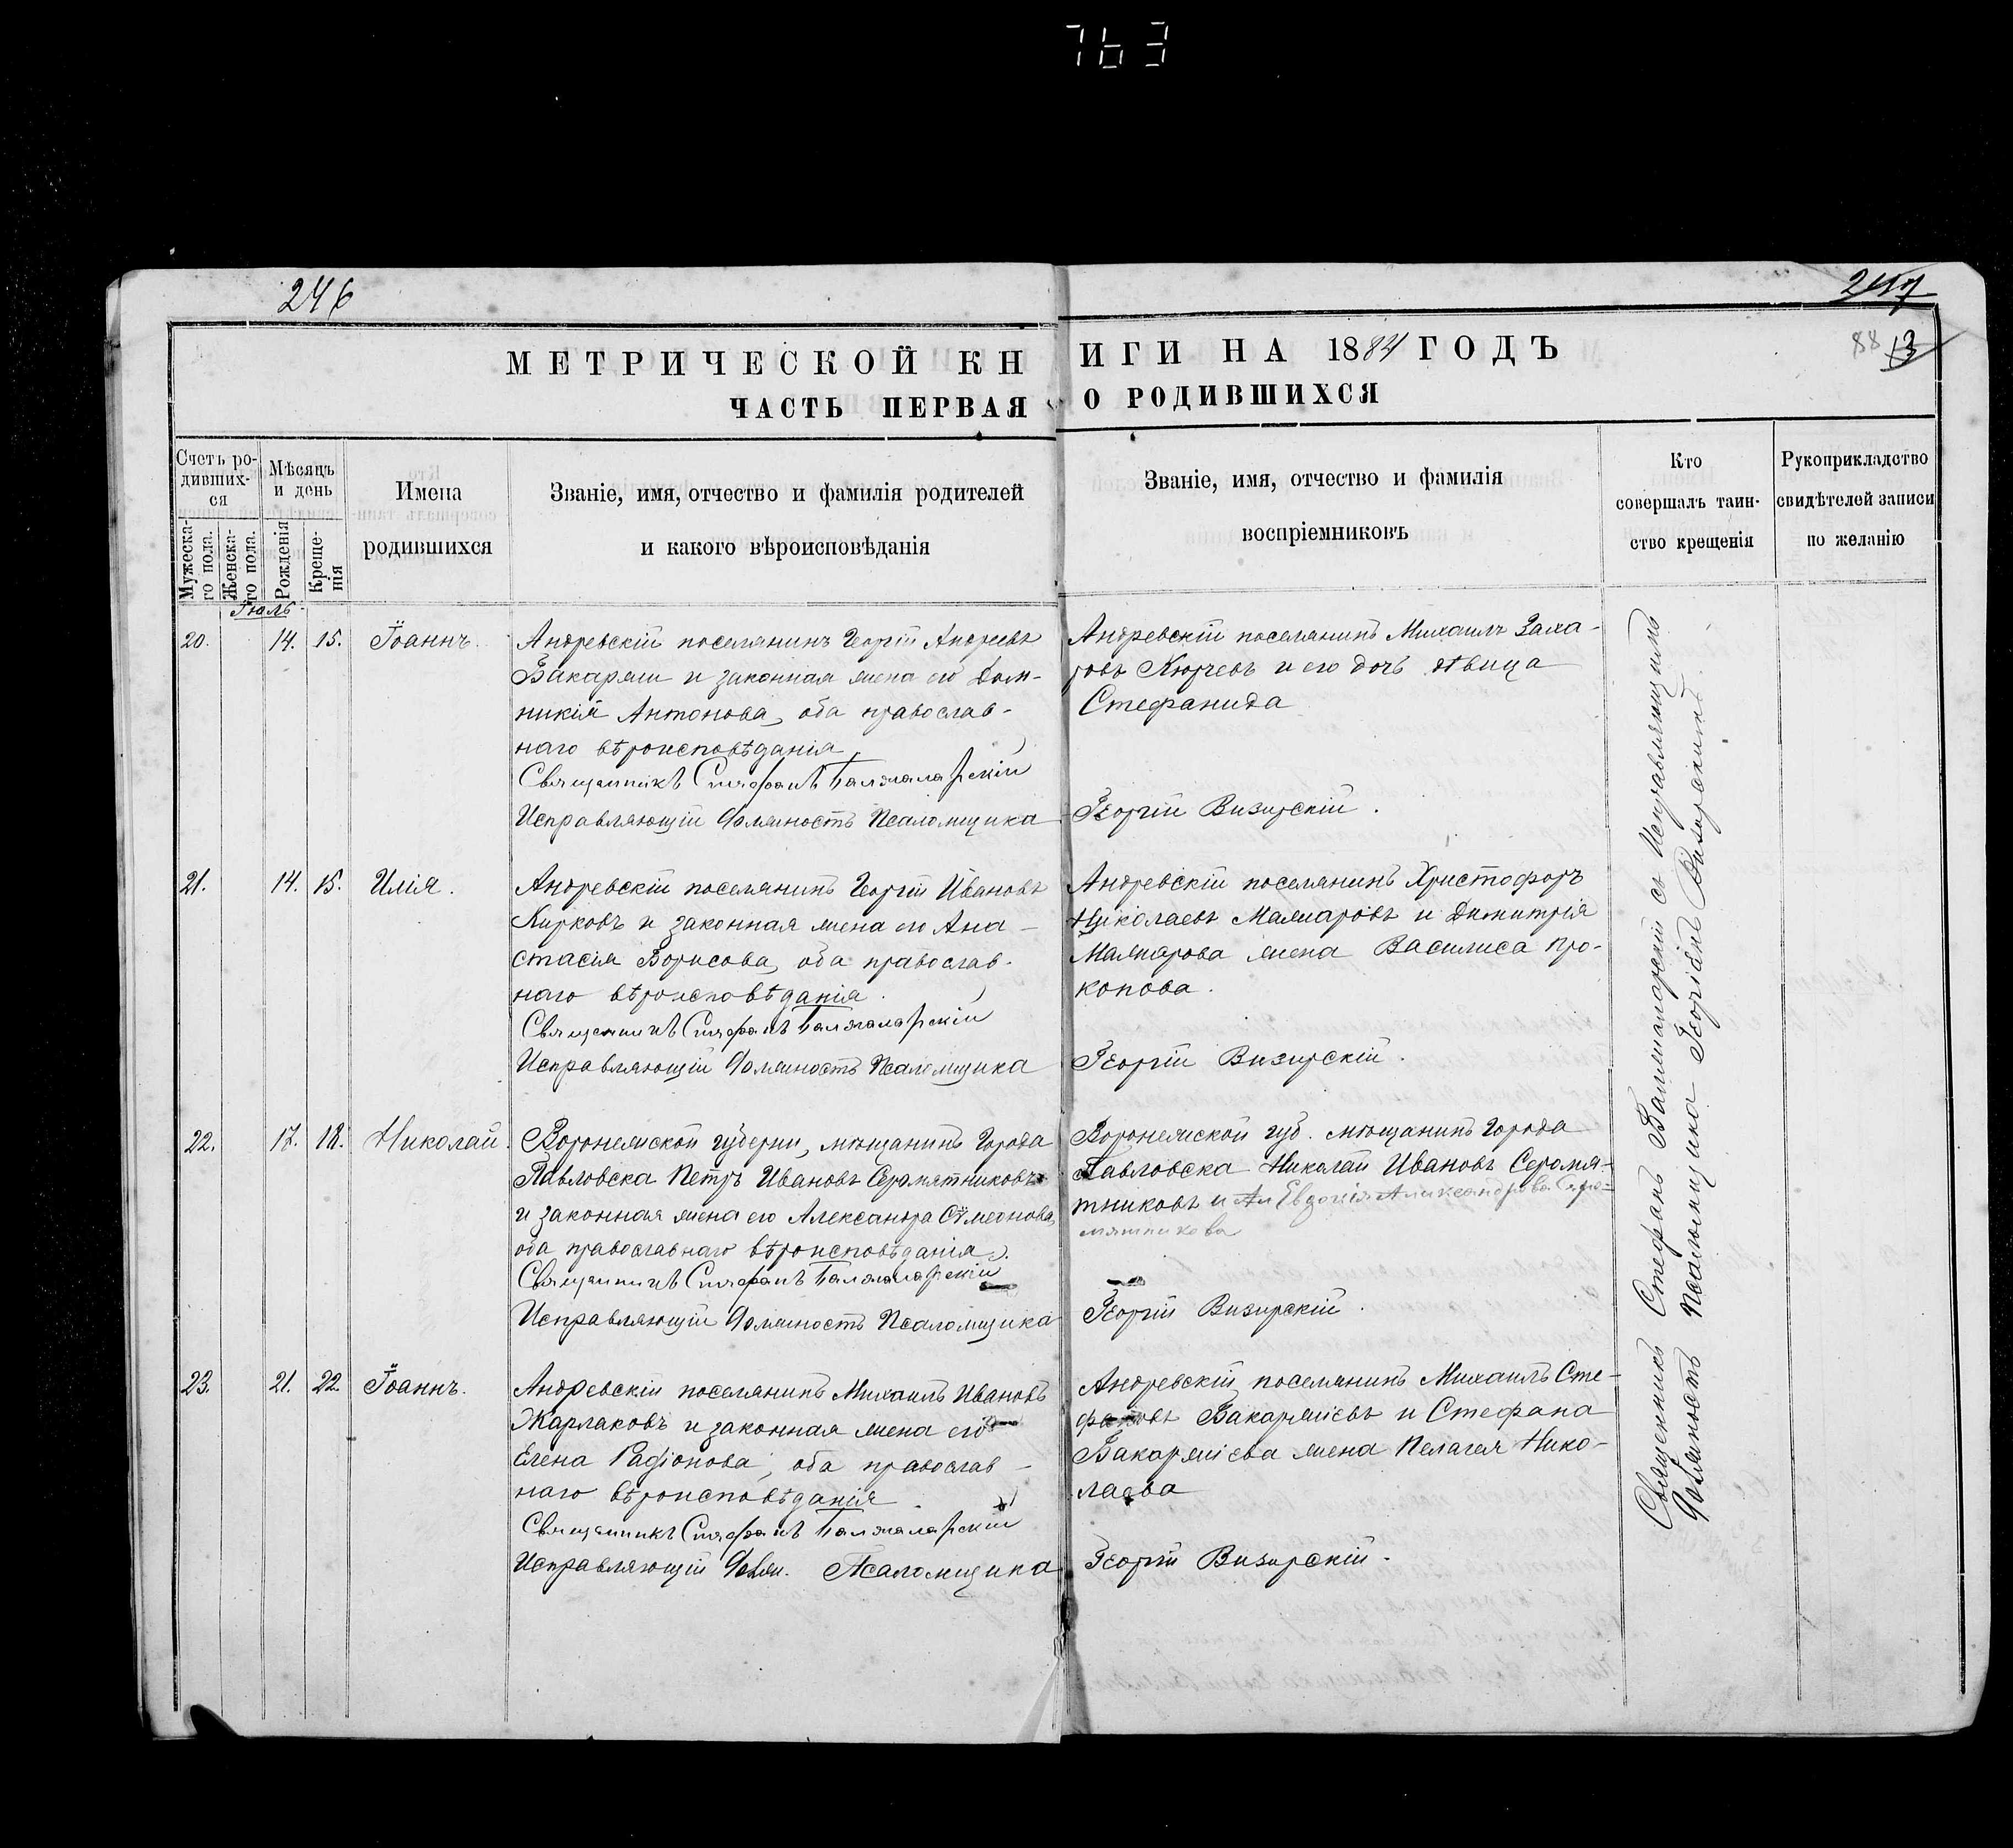 763
246
247
88 13
МЕТРИЧЕСКОЙ КНИГИ НА 1884 ГОДЪ
ЧАСТЬ ПЕРВАЯ О РОДИВШИХСЯ
Счетъ ро-
дивших-
ся
Мужеска-
го пола.
Женска-
го пола.
Мѣсяцъ
и день
Рожденія
Креще-
нія
Имена
родившихся
Званіе, имя, отчество и фамилія родителей
и какого вѣроисповѣданія
Званіе, имя, отчество и фамилія
воспріемниковъ
Кто
совершалъ таин-
ство крещенія
Рукоприкладство
свидѣтелей записи
по желанію
Іюль
20. 14. 15. Іоаннъ.
Андреевскій поселянинъ Георгій Андреевъ
и законная жена его Дом-
никія Антонова, оба православ-
наго вѣроисповѣданія
Священникъ Стефанъ Балжаларскій
Исправляющій должность Псаломщика
Андревскій поселянинъ Михаилъ Заха-
ровъ Кюрчевъ и его дочь дѣвица
Стефанида
Георгій Визирскій.
21. 14. 15. Илія.
Андревскій поселянинъ Георгій Ивановъ
Кирковъ и законная жена его Ана-
стасія Борисова, оба православ-
наго вѣроисповѣданія.
Священникъ Стефанъ Балжаларскій
Исправляющій должность Псаломщика
Андревскій поселянинъ Христофоръ
Николаевъ Мажаровъ и Димитрія
Мажарова жена Василиса Про-
копова.
Георгій Визирскій.
22. 17. 18. Николай.
Воронежской губерни, мѣщанинъ города
Павловска Петръ Ивановъ Серомятниковъ
и законная жена его Александра Сѵмеонова,
оба православнаго вѣроисповѣданія.
Священникъ Стефанъ Балжаларскій
Исправляющій должность Псаломщика
Воронежской губ. мѣщанинъ города
Павловска Николай Ивановъ Серомя-
тниковъ и Евдокія Александрова Серо-
мятникова
Георгій Визирскій.
23. 21. 22. Іоаннъ.
Андревскій поселянинъ Михаилъ Ивановъ
Жарлаковъ и законная жена его
Елена Радіонова, оба православ-
наго вѣроисповѣданія.
Священникъ Стефанъ Балжаларскій
Исправляющій Долж. Псаломщика
Андревскій поселянинъ Михаилъ Сте-
фановъ Бакаржіевъ и Стефана
Бакаржіева жена Пелагея Нико-
лаева
Георгій Визирскій.
Священникъ Стефанъ Балжаларскій съ Исправляющимъ
Должность Псаломщика Георгіемъ Визирскимъ.